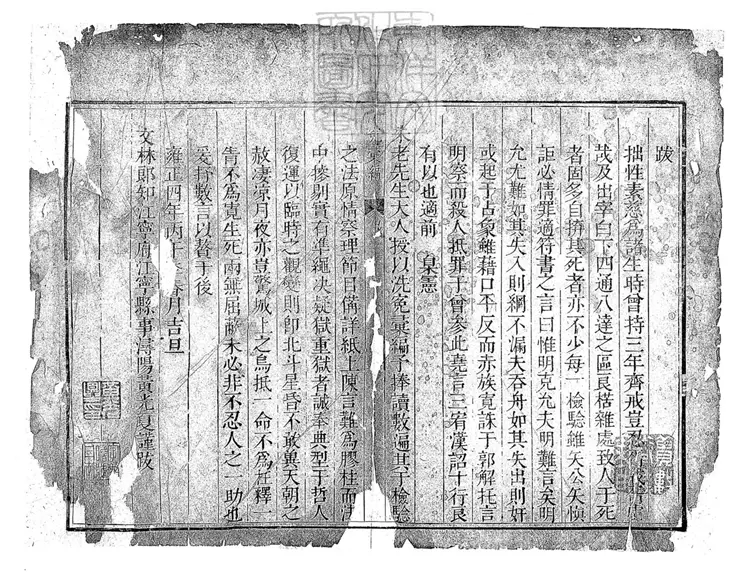 跋
拙性素慈爲諸生時曾持三年齊戒豈
哉及出宰白下四通八達之區良楛雜處致人于死
者固多自拚其死者亦不少每一檢驗雖矢公矢愼
詎必情罪適符書之言曰惟明克允夫明難言矣明
允尤難如其失入則網不漏夫吞舟如其失出則奸
或起于占象雖藉口平反而赤族寃誅于郭解托言
明察而殺人抵罪于曾參此堯言三宥漢詔十行良
有以也適前 臬憲
老先生大人授以洗寃彙編予捧讀數遍其于檢驗
之法原情察理節目備詳紙上陳言難爲膠柱而
中摻剔實有準繩决疑獄重獄者誠奉典型于哲人
復運以臨時之觀變則卽北斗星昏不敢異天朝之
赦凄凉月夜亦豈驚城上之烏抵一命不爲枉釋一
眚不爲寃生死兩雖屈蔽未必非不忍人之一助也
爰抒數言以贅于後
雍正四年丙午 月吉旦
文林郎知江寧府江寧縣事潯陽黃光夏謹跋